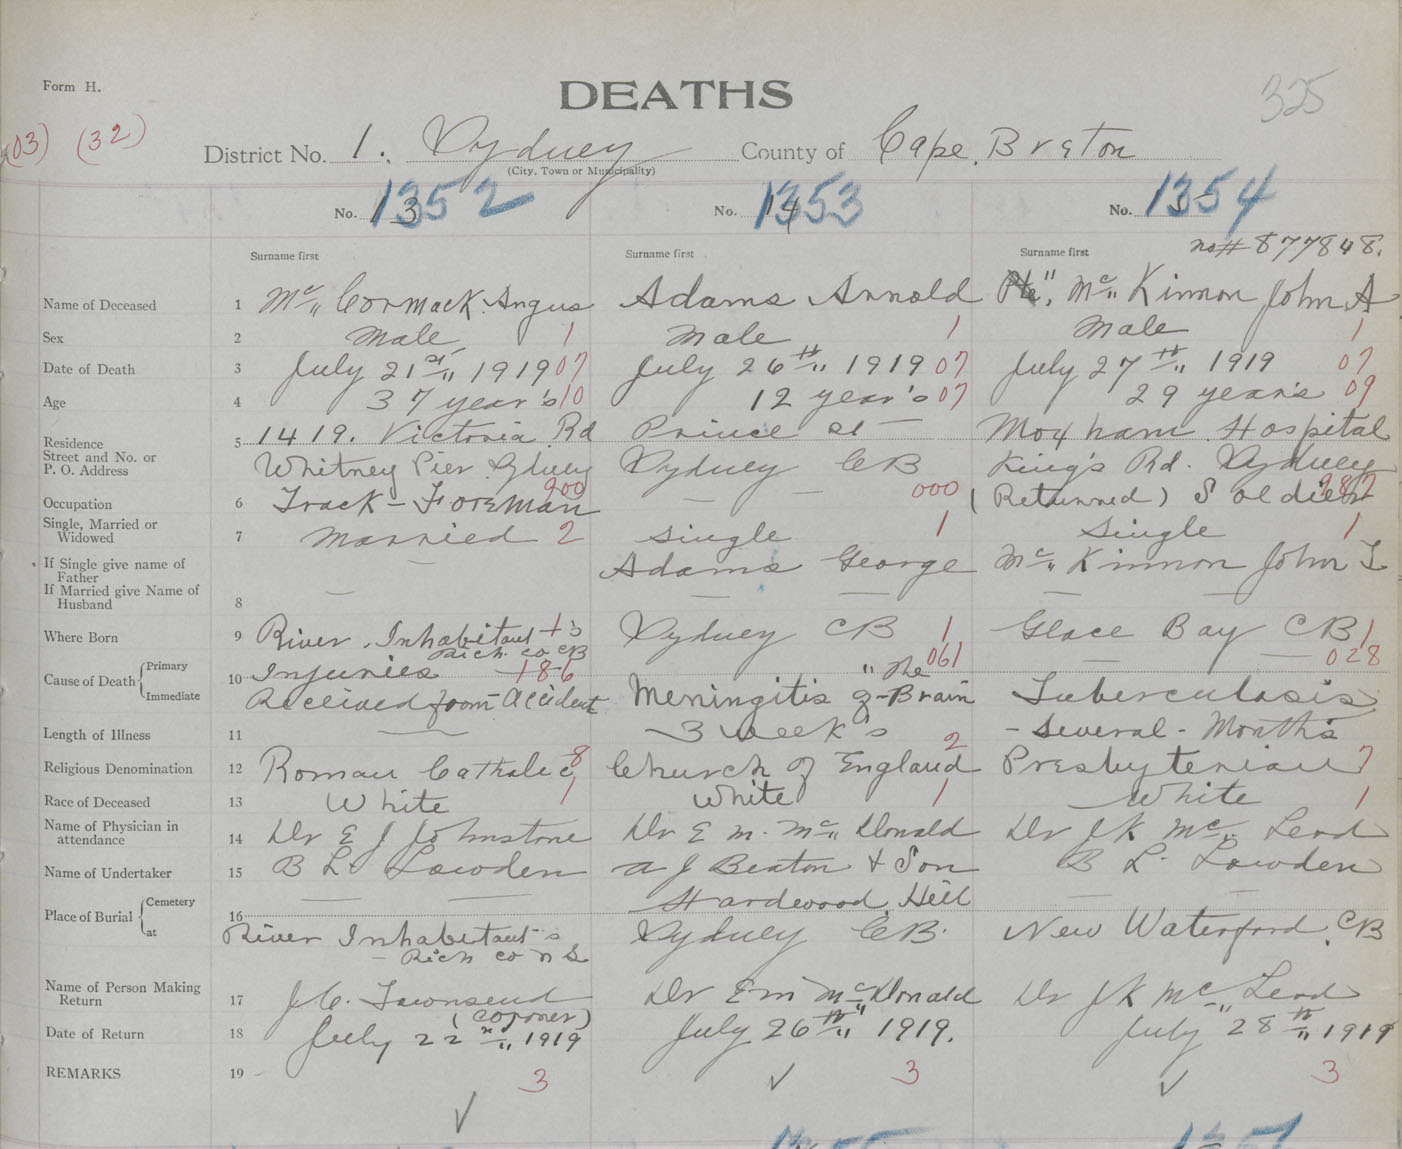 Form H.
DEATHS
325
(03) (32)
District No. 1. Sydney County of Cape Breton
(City, Town or Municipality)
No. 13 1352 No. 14 1353 No. 1354
Surname first Surname first Surname first no# 877848.
Name of Deceased 1 Mc" Cormack. Angus Adams Arnold Pte", Mc" Kinnon John A
Sex 2 Male 1 Male 1 Male 1
Date of Death 3 July 21st" 1919 07 July 26th" 1919 07 July 27th" 1919 07
Age 4 37 year's 10 12 year's 07 29 year's 09
Residence
Street and No. or
P. O. Address
5 1419. Victoria Rd Prince St — Moxham Hospital
Whitney Pier Sydney Sydney CB King's Rd. Sydney
Occupation 6 Track - Foreman 900 — — 000 (Returned) Soldier
Single, Married or
Widowed
7 Married 2 single 1 single 1
If Single give name of
Father
— Adams George Mc" Kinnon John L
If Married give Name of
Husband
8 — — — — —
Where Born 9 River Inhabitant's 1 Sydney CB 1 Glace Bay CB 1
Rich. co CB
Cause of Death { Primary 10 Injuries — 186 "The 061 — — 028
Immediate Received from Accident Meningitis of Brain Tuberculosis
Length of Illness 11 — 3 week's - several - Months
Religious Denomination 12 Roman Catholic 8 Church of England 2 Presbyterian 7
Race of Deceased 13 White 1 White 1 White 1
Name of Physician in
attendance
14 Dr E J Johnstone Dr E M. Mc" Donald Dr J K Mc" Leod
Name of Undertaker 15 B L Lowden A J Beaton & Son B L. Lowden
Place of Burial { Cemetery 16 — — Hardwood Hill — —
at River Inhabitant's Sydney CB. New Waterford, CB
- Rich co N S
Name of Person Making
Return
17 J C. Townsend Dr E M Mc" Donald Dr J K Mc" Leod
(coroner)
Date of Return 18 July 22nd" 1919 July 26th" 1919. July 28th" 1919
REMARKS 19 - 3 ✓ 3 ✓ 3
✓